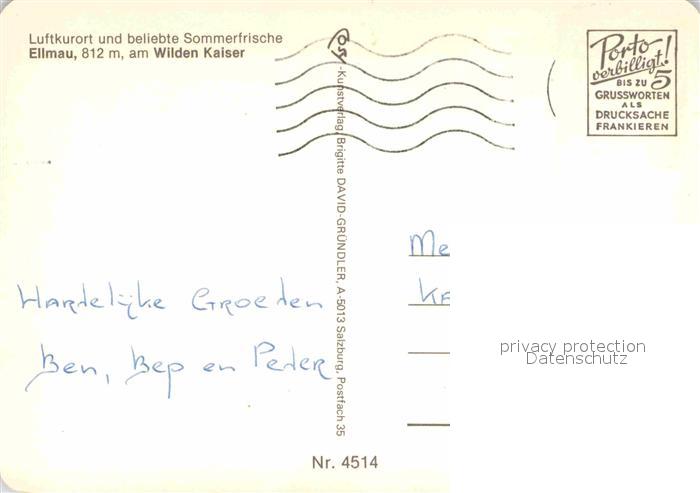 Luftkurort und beliebte Sommerfrische
Ellmau, 812 m, am Wilden Kaiser
Porto
verbilligt!
BIS ZU 5
GRUSSWORTEN
ALS
DRUCKSACHE
FRANKIEREN
Kunstverlag Brigitte DAVID-GRÜNDLER, A-5013 Salzburg, Postfach 35
Me
Hartelijke Groeten
Ben, Bep en Peter
privacy protection
Datenschutz
Nr. 4514